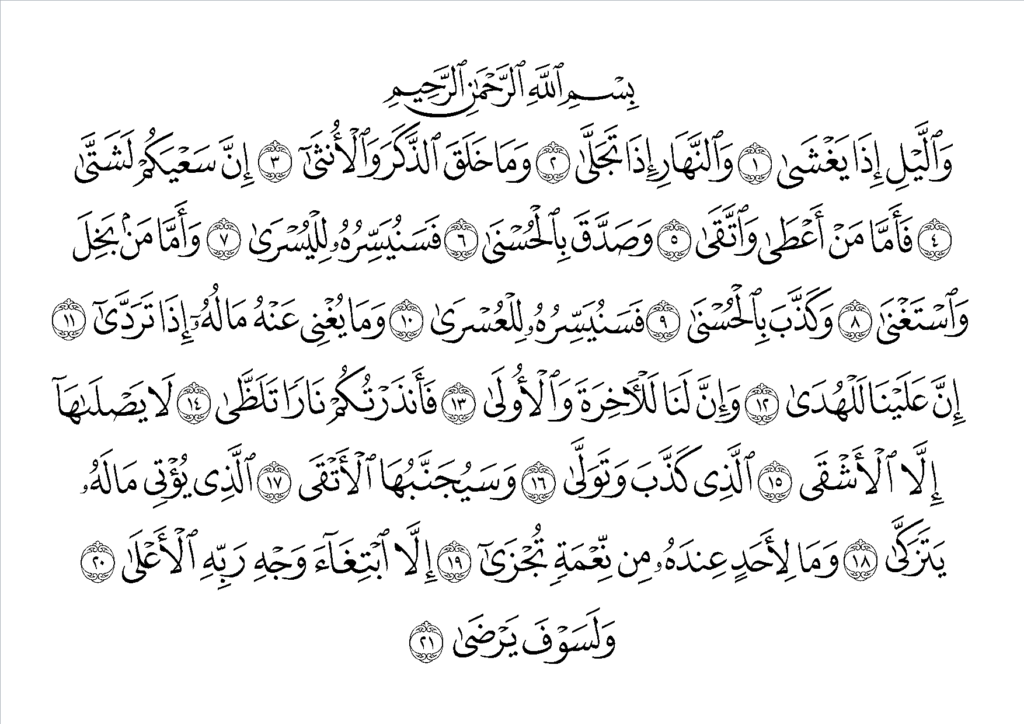 بِسْمِ ٱللَّهِ ٱلرَّحْمَٰنِ ٱلرَّحِيمِ
وَٱلَّيْلِ إِذَا يَغْشَىٰ ١ وَٱلنَّهَارِ إِذَا تَجَلَّىٰ ٢ وَمَا خَلَقَ ٱلذَّكَرَ وَٱلْأُنثَىٰٓ ٣ إِنَّ سَعْيَكُمْ لَشَتَّىٰ
٤ فَأَمَّا مَنْ أَعْطَىٰ وَٱتَّقَىٰ ٥ وَصَدَّقَ بِٱلْحُسْنَىٰ ٦ فَسَنُيَسِّرُهُۥ لِلْيُسْرَىٰ ٧ وَأَمَّا مَنۢ بَخِلَ
وَٱسْتَغْنَىٰ ٨ وَكَذَّبَ بِٱلْحُسْنَىٰ ٩ فَسَنُيَسِّرُهُۥ لِلْعُسْرَىٰ ١٠ وَمَا يُغْنِى عَنْهُ مَالُهُۥٓ إِذَا تَرَدَّىٰٓ ١١
إِنَّ عَلَيْنَا لَلْهُدَىٰ ١٢ وَإِنَّ لَنَا لَلْـَٔاخِرَةَ وَٱلْأُولَىٰ ١٣ فَأَنذَرْتُكُمْ نَارًا تَلَظَّىٰ ١٤ لَا يَصْلَىٰهَآ
إِلَّا ٱلْأَشْقَى ١٥ ٱلَّذِى كَذَّبَ وَتَوَلَّىٰ ١٦ وَسَيُجَنَّبُهَا ٱلْأَتْقَى ١٧ ٱلَّذِى يُؤْتِى مَالَهُۥ
يَتَزَكَّىٰ ١٨ وَمَا لِأَحَدٍ عِندَهُۥ مِن نِّعْمَةٍ تُجْزَىٰٓ ١٩ إِلَّا ٱبْتِغَآءَ وَجْهِ رَبِّهِ ٱلْأَعْلَىٰ ٢٠
وَلَسَوْفَ يَرْضَىٰ ٢١